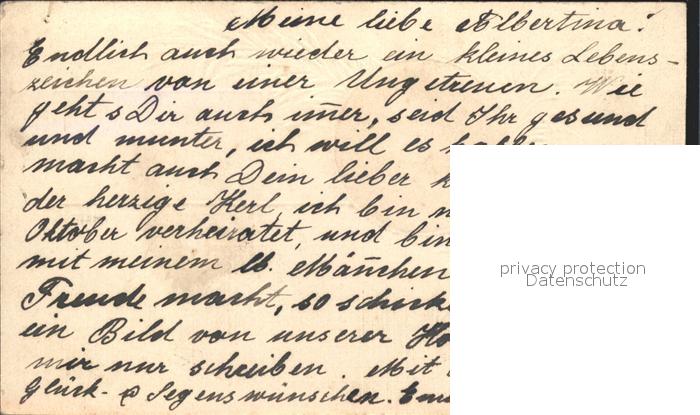 Meine liebe Albertina!
Endlich auch wieder ein kleines Lebens-
zeichen von einer Ungetreuen. Wie
geht s Dir auch im̄er, seid Ihr gesund
und munter, ich will es
macht auch Dein lieber
der herzige Kerl ich bin
Oktober verheiratet, und bin
mit meinem lb. Män̄chen
Freude macht, so schicke
ein Bild von unserer
mir nur schreiben. Mit
Glück- & Segenswünschen.
privacy protection
Datenschutz